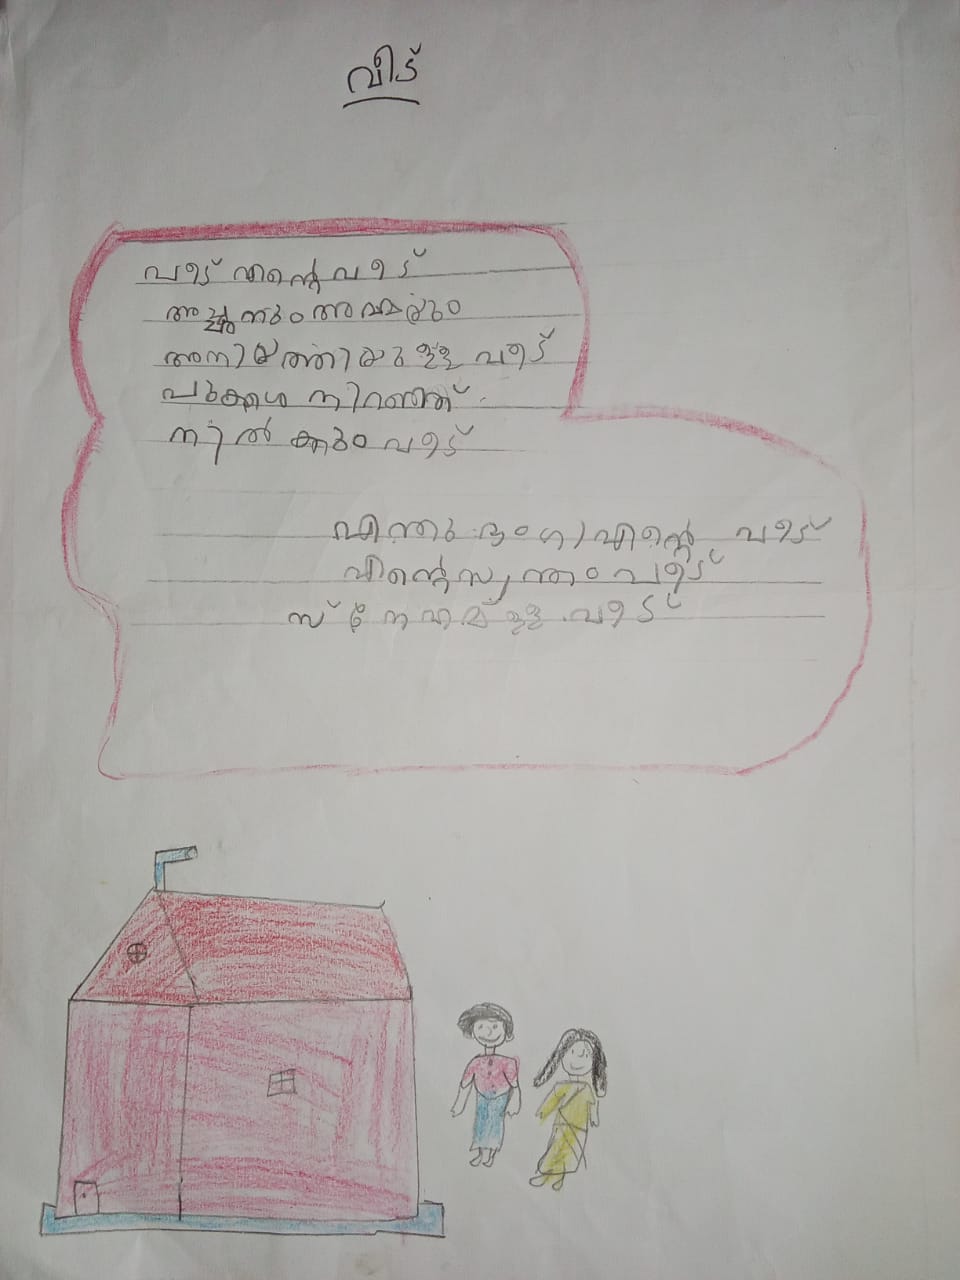 വീട്
വീട് എന്റെ വീട്
അച്ഛനും അമ്മയും
അനിയത്തിയുള്ള വീട്
പൂക്കൾ നിറഞ്ഞ്
നിൽക്കും വീട്
എന്തു ഭംഗി എന്റെ വീട്
എന്റെ സ്വന്തം വീട്
സ്നേഹമുള്ള വീട്